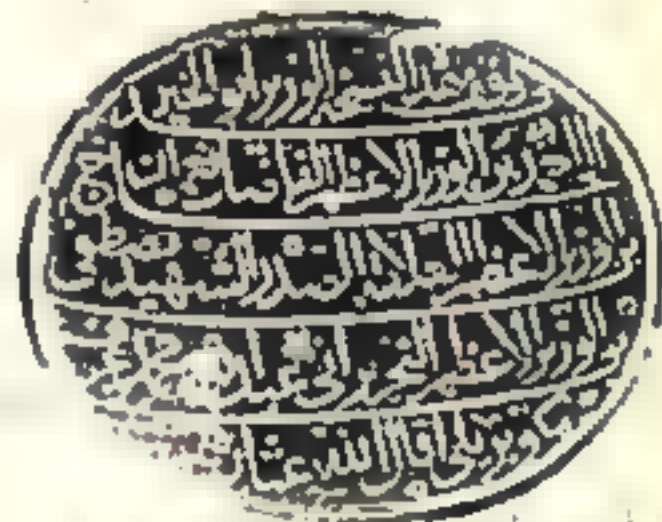 وقف هذه النسخه الوزير ابو الخير
الحاج احمد بن الوزير الاعظم نعمان بن
الوزير الاعظم العلامة الصدر الشهيد مصطفى بن
الوزير الاعظم النحرير ابي عبد الله محمد عرف
بكوبريلي اقال الله عثا